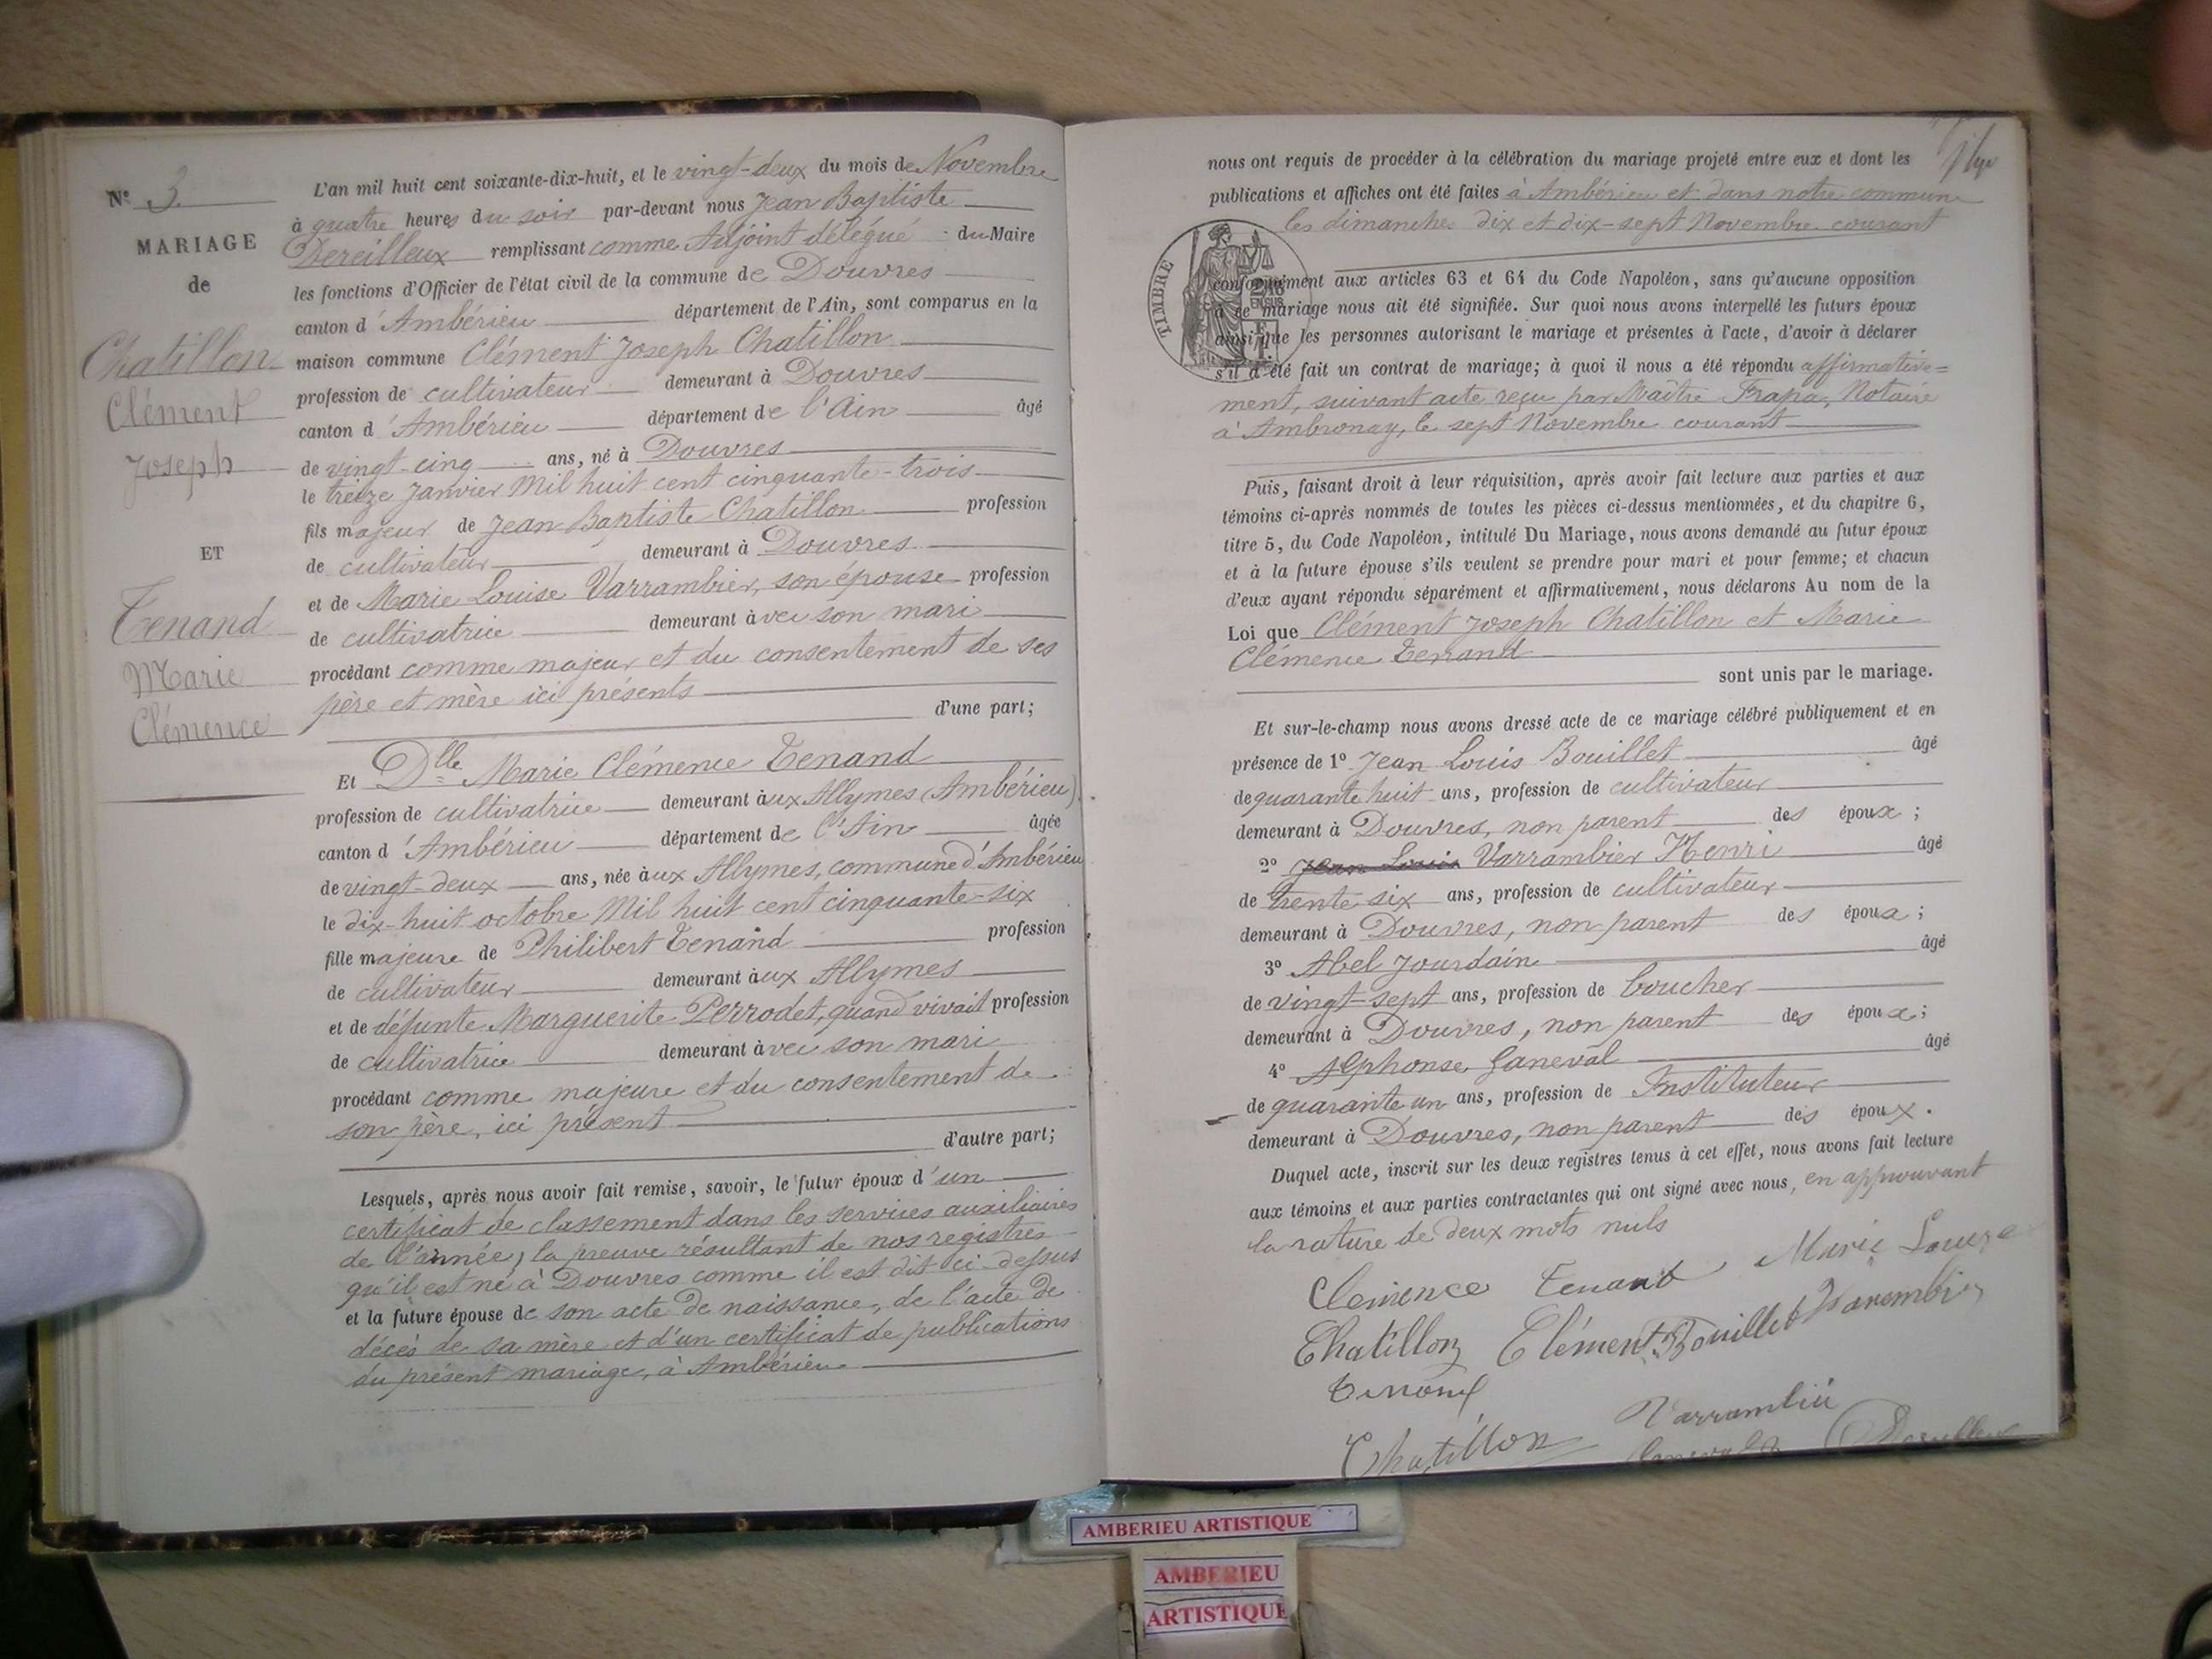 Nº 3.
MARIAGE
de
Chatillon
Clément
Joseph
ET
Tenand
Marie
Clémence
L'an mil huit cent soixante-dix-huit, et le vingt-deux du mois de Novembre
à quatre heures du soir par-devant nous Jean Baptiste
Dereilleux remplissant comme Adjoint délégué du Maire
les fonctions d'Officier de l'état civil de la commune de Douvres
canton d'Ambérieu département de l'Ain, sont comparus en la
maison commune Clément Joseph Chatillon
profession de cultivateur demeurant à Douvres
canton d'Ambérieu département de l'Ain âgé
de vingt-cinq ans, né à Douvres
le treize Janvier Mil huit cent cinquante-trois
fils majeur de Jean Baptiste Chatillon profession
de cultivateur demeurant à Douvres
et de Marie Louise Varrambier, son épouse profession
de cultivatrice demeurant avec son mari
procédant comme majeur et du consentement de ses
père et mère ici présents
d'une part;
Et Dlle Marie Clémence Tenand
profession de cultivatrice demeurant aux Allymes (Ambérieu)
canton d'Ambérieu département de l'Ain âgée
de vingt-deux ans, née aux Allymes, commune d'Ambérieu
le dix-huit octobre Mil huit cent cinquante-six
fille majeure de Philibert Tenand profession
de cultivateur demeurant aux Allymes
et de défunte Marguerite Perrodet, quand vivait profession
de cultivatrice demeurant avec son mari
procédant comme majeure et du consentement de
son père, ici présent
d'autre part;
Lesquels, après nous avoir fait remise, savoir, le futur époux d'un
certificat de classement dans les services auxiliaires
de l'année, la preuve résultant de nos registres
qu'il est né à Douvres comme il est dit ci-dessus
et la future épouse de son acte de naissance, de l'acte de
décès de sa mère et d'un certificat de publications
du présent mariage, à Ambérieu
nous ont requis de procéder à la célébration du mariage projeté entre eux et dont les
publications et affiches ont été faites à Ambérieu et dans notre commune
les dimanches dix et dix-sept Novembre courant
TIMBRE
conformément aux articles 63 et 64 du Code Napoléon, sans qu'aucune opposition
à ce mariage nous ait été signifiée. Sur quoi nous avons interpellé les futurs époux
ainsi que les personnes autorisant le mariage et présentes à l'acte, d'avoir à déclarer
s'il a été fait un contrat de mariage; à quoi il nous a été répondu affirmative=
ment, suivant acte reçu par Maître Frapa, Notaire
à Ambronay, le sept Novembre courant
Puis, faisant droit à leur réquisition, après avoir fait lecture aux parties et aux
témoins ci-après nommés de toutes les pièces ci-dessus mentionnées, et du chapitre 6,
titre 5, du Code Napoléon, intitulé Du Mariage, nous avons demandé au futur époux
et à la future épouse s'ils veulent se prendre pour mari et pour femme; et chacun
d'eux ayant répondu séparément et affirmativement, nous déclarons Au nom de la
Loi que Clément Joseph Chatillon et Marie
Clémence Tenand
sont unis par le mariage.
Et sur-le-champ nous avons dressé acte de ce mariage célébré publiquement et en
présence de 1º Jean Louis Bouillet âgé
de quarante huit ans, profession de cultivateur
demeurant à Douvres, non parent des époux;
2º Jean Louis Varrambier Henri âgé
de trente six ans, profession de cultivateur
demeurant à Douvres, non parent des époux;
3º Abel Jourdain âgé
de vingt-sept ans, profession de boucher
demeurant à Douvres, non parent des époux;
4º Alphonse Ganeval âgé
de quarante un ans, profession de Instituteur
demeurant à Douvres, non parent des époux.
Duquel acte, inscrit sur les deux registres tenus à cet effet, nous avons fait lecture
aux témoins et aux parties contractantes qui ont signé avec nous, en approuvant
la rature de deux mots nuls
Clemence Tenand Marie Louise
Chatillon Clément Bouillet Varembier
Tenand
Chatillon Varrambier
Ganeval Dereilleux
AMBERIEU ARTISTIQUE
AMBERIEU
ARTISTIQUE